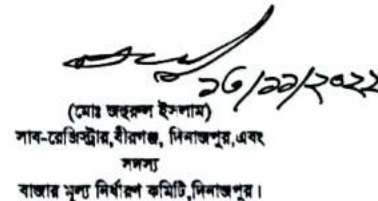 ১৬/১১/২০২২
(মোঃ জহুরুল ইসলাম)
সাব-রেজিস্ট্রার, বীরগঞ্জ, দিনাজপুর, এবং
সদস্য
বাজার মূল্য নির্ধারণ কমিটি, দিনাজপুর।